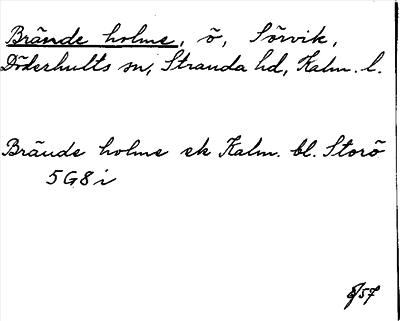 Brände holme, ö, Sörvik,
Döderhults sn, Stranda hd, Kalm. l.
Brände holme ek Kalm. bl. Storö
5G8i
8/57